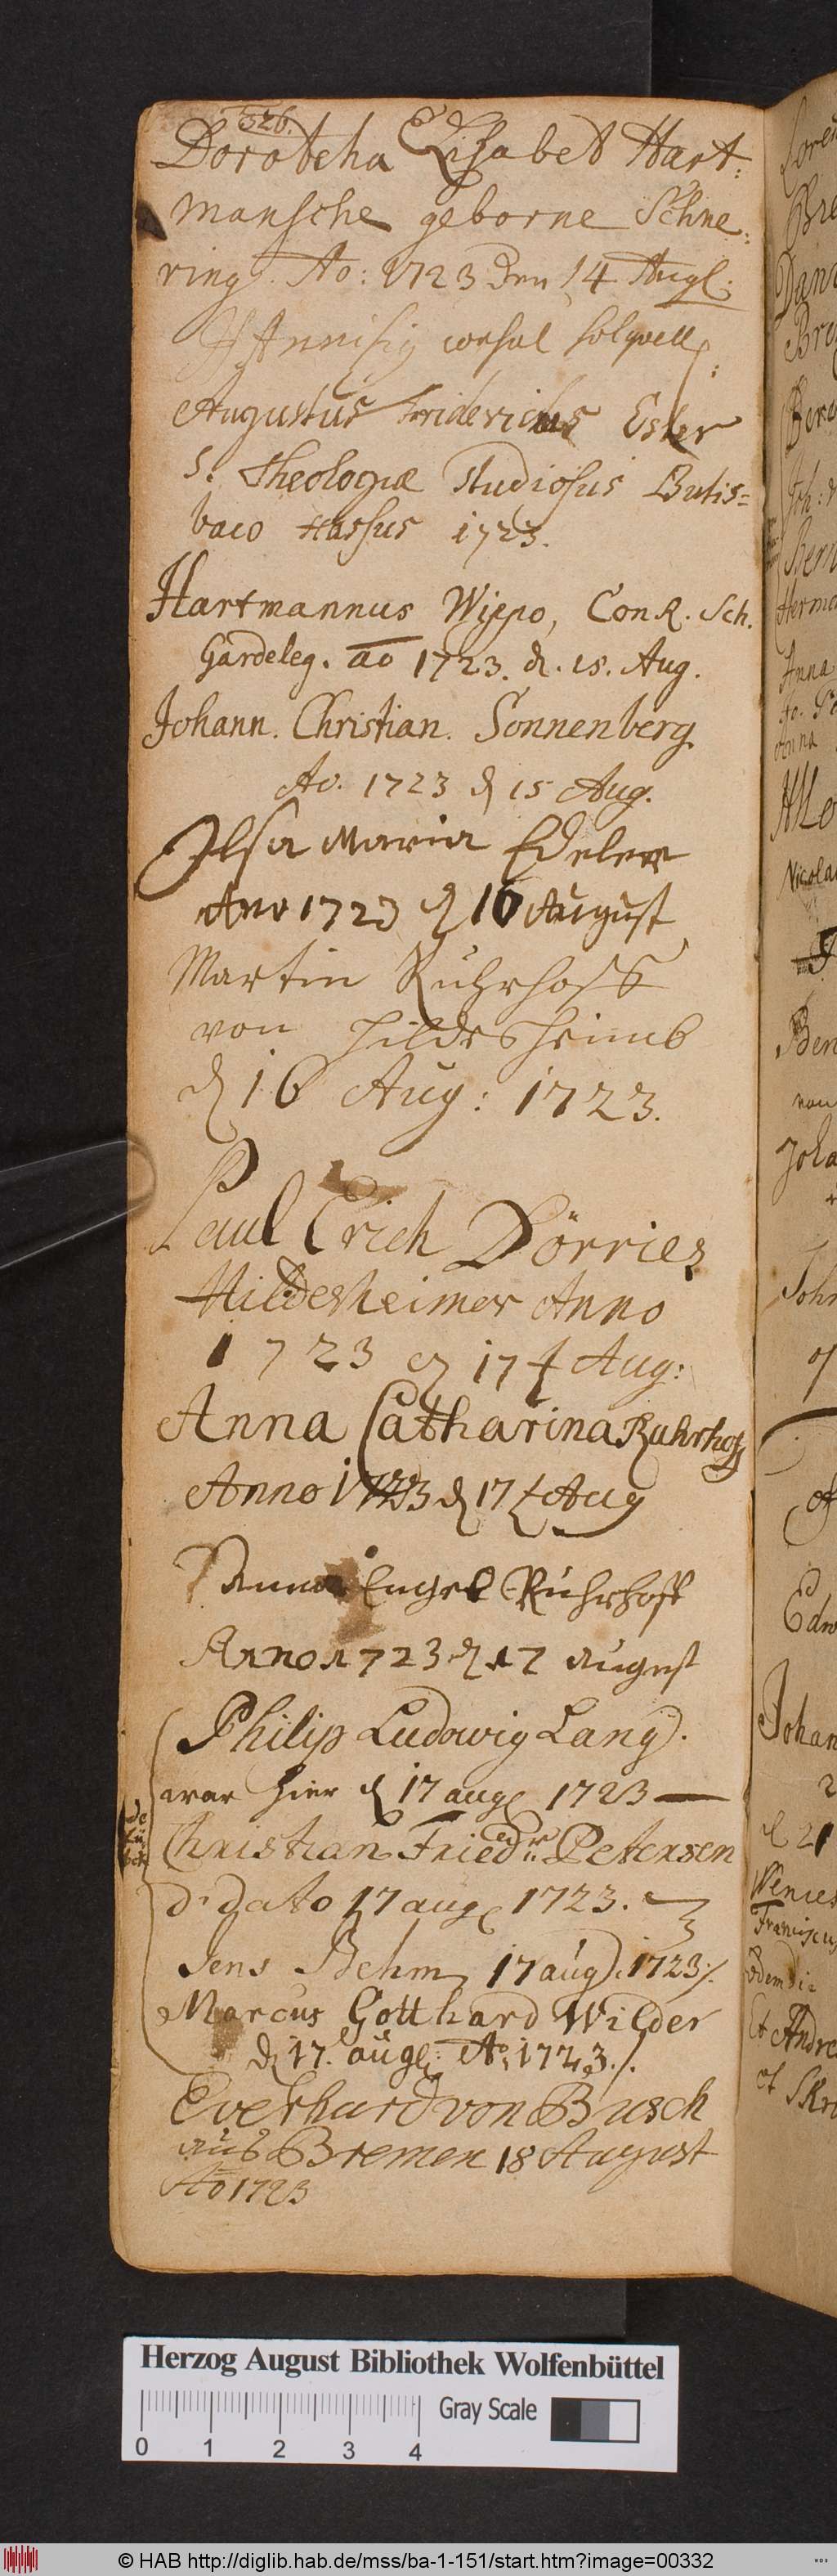 326.
Dorotheha Elisabet Hart-
mansche geborne Schne-
ring. Ao: 1723 den 14 Augl:
Augustus Fridericus Esler
S. Theologiæ Studiosus Butis=
baco Hassus 1723.
Hartmannus Wippo, ConR. Sch.
Gardeleg. ao 1723. d. 15. Aug.
Johann. Christian. Sonnenberg
Ao. 1723 d 15 Aug.
Ilsa Maria Edeler
Ano 1723 d 16 August
Martin Ruhrhoff
von Hildesheimb
d 16 Aug: 1723.
Paul Erich Dörries
Hildesheimer Anno
1723 d 17 t Aug:
Anna Catharina Ruhrhoff
Anno 1723 d 17 t Aug
Anna Engel Ruhrhoff
Anno 1723 d 17 August
Philip Ludowig Lang.
war hier d 17 aug 1723
Christian Friedr. Petersen
d. dato 17 aug 1723.
Jens Behm 17 aug. 1723 /.
Marcus Gotthard Wilder
d 17. aug: Ao. 1723. /.
Everhard von Busch
aus Bremen 18 August
Ao 1723
Anna
Nicola
Ben
von
Joha
Joh
Edw
Johan
d 21
Wences
Franciscu
Et Andre
et
Herzog August Bibliothek Wolfenbüttel
0 1 2 3 4
Gray Scale
© HAB http://diglib.hab.de/mss/ba-1-151/start.htm?image=00332